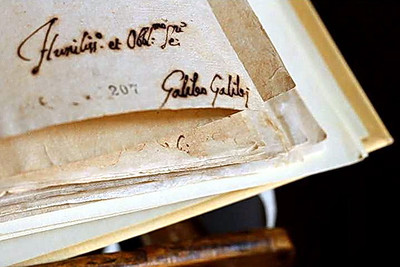 Humiliss.o et Obblig.mo Ser.
207
Galileo Galilei